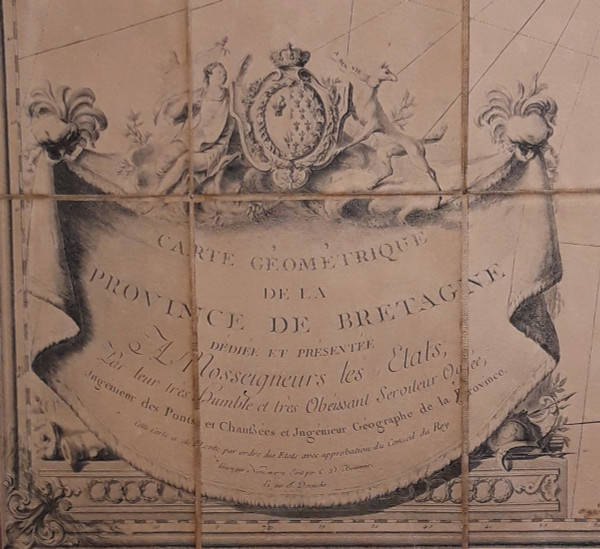 CARTE GÉOMÉTRIQUE
DE LA
PROVINCE DE BRETAGNE
DÉDIÉE ET PRÉSENTÉE
A Nosseigneurs les Etats,
Par leur très Humble et très Obéissant Serviteur Ogée,
Ingénieur des Ponts et Chaussées et Ingénieur Géographe de la Province.
Cette Carte a été par ordre des Etats avec approbation du Conseil du Roy